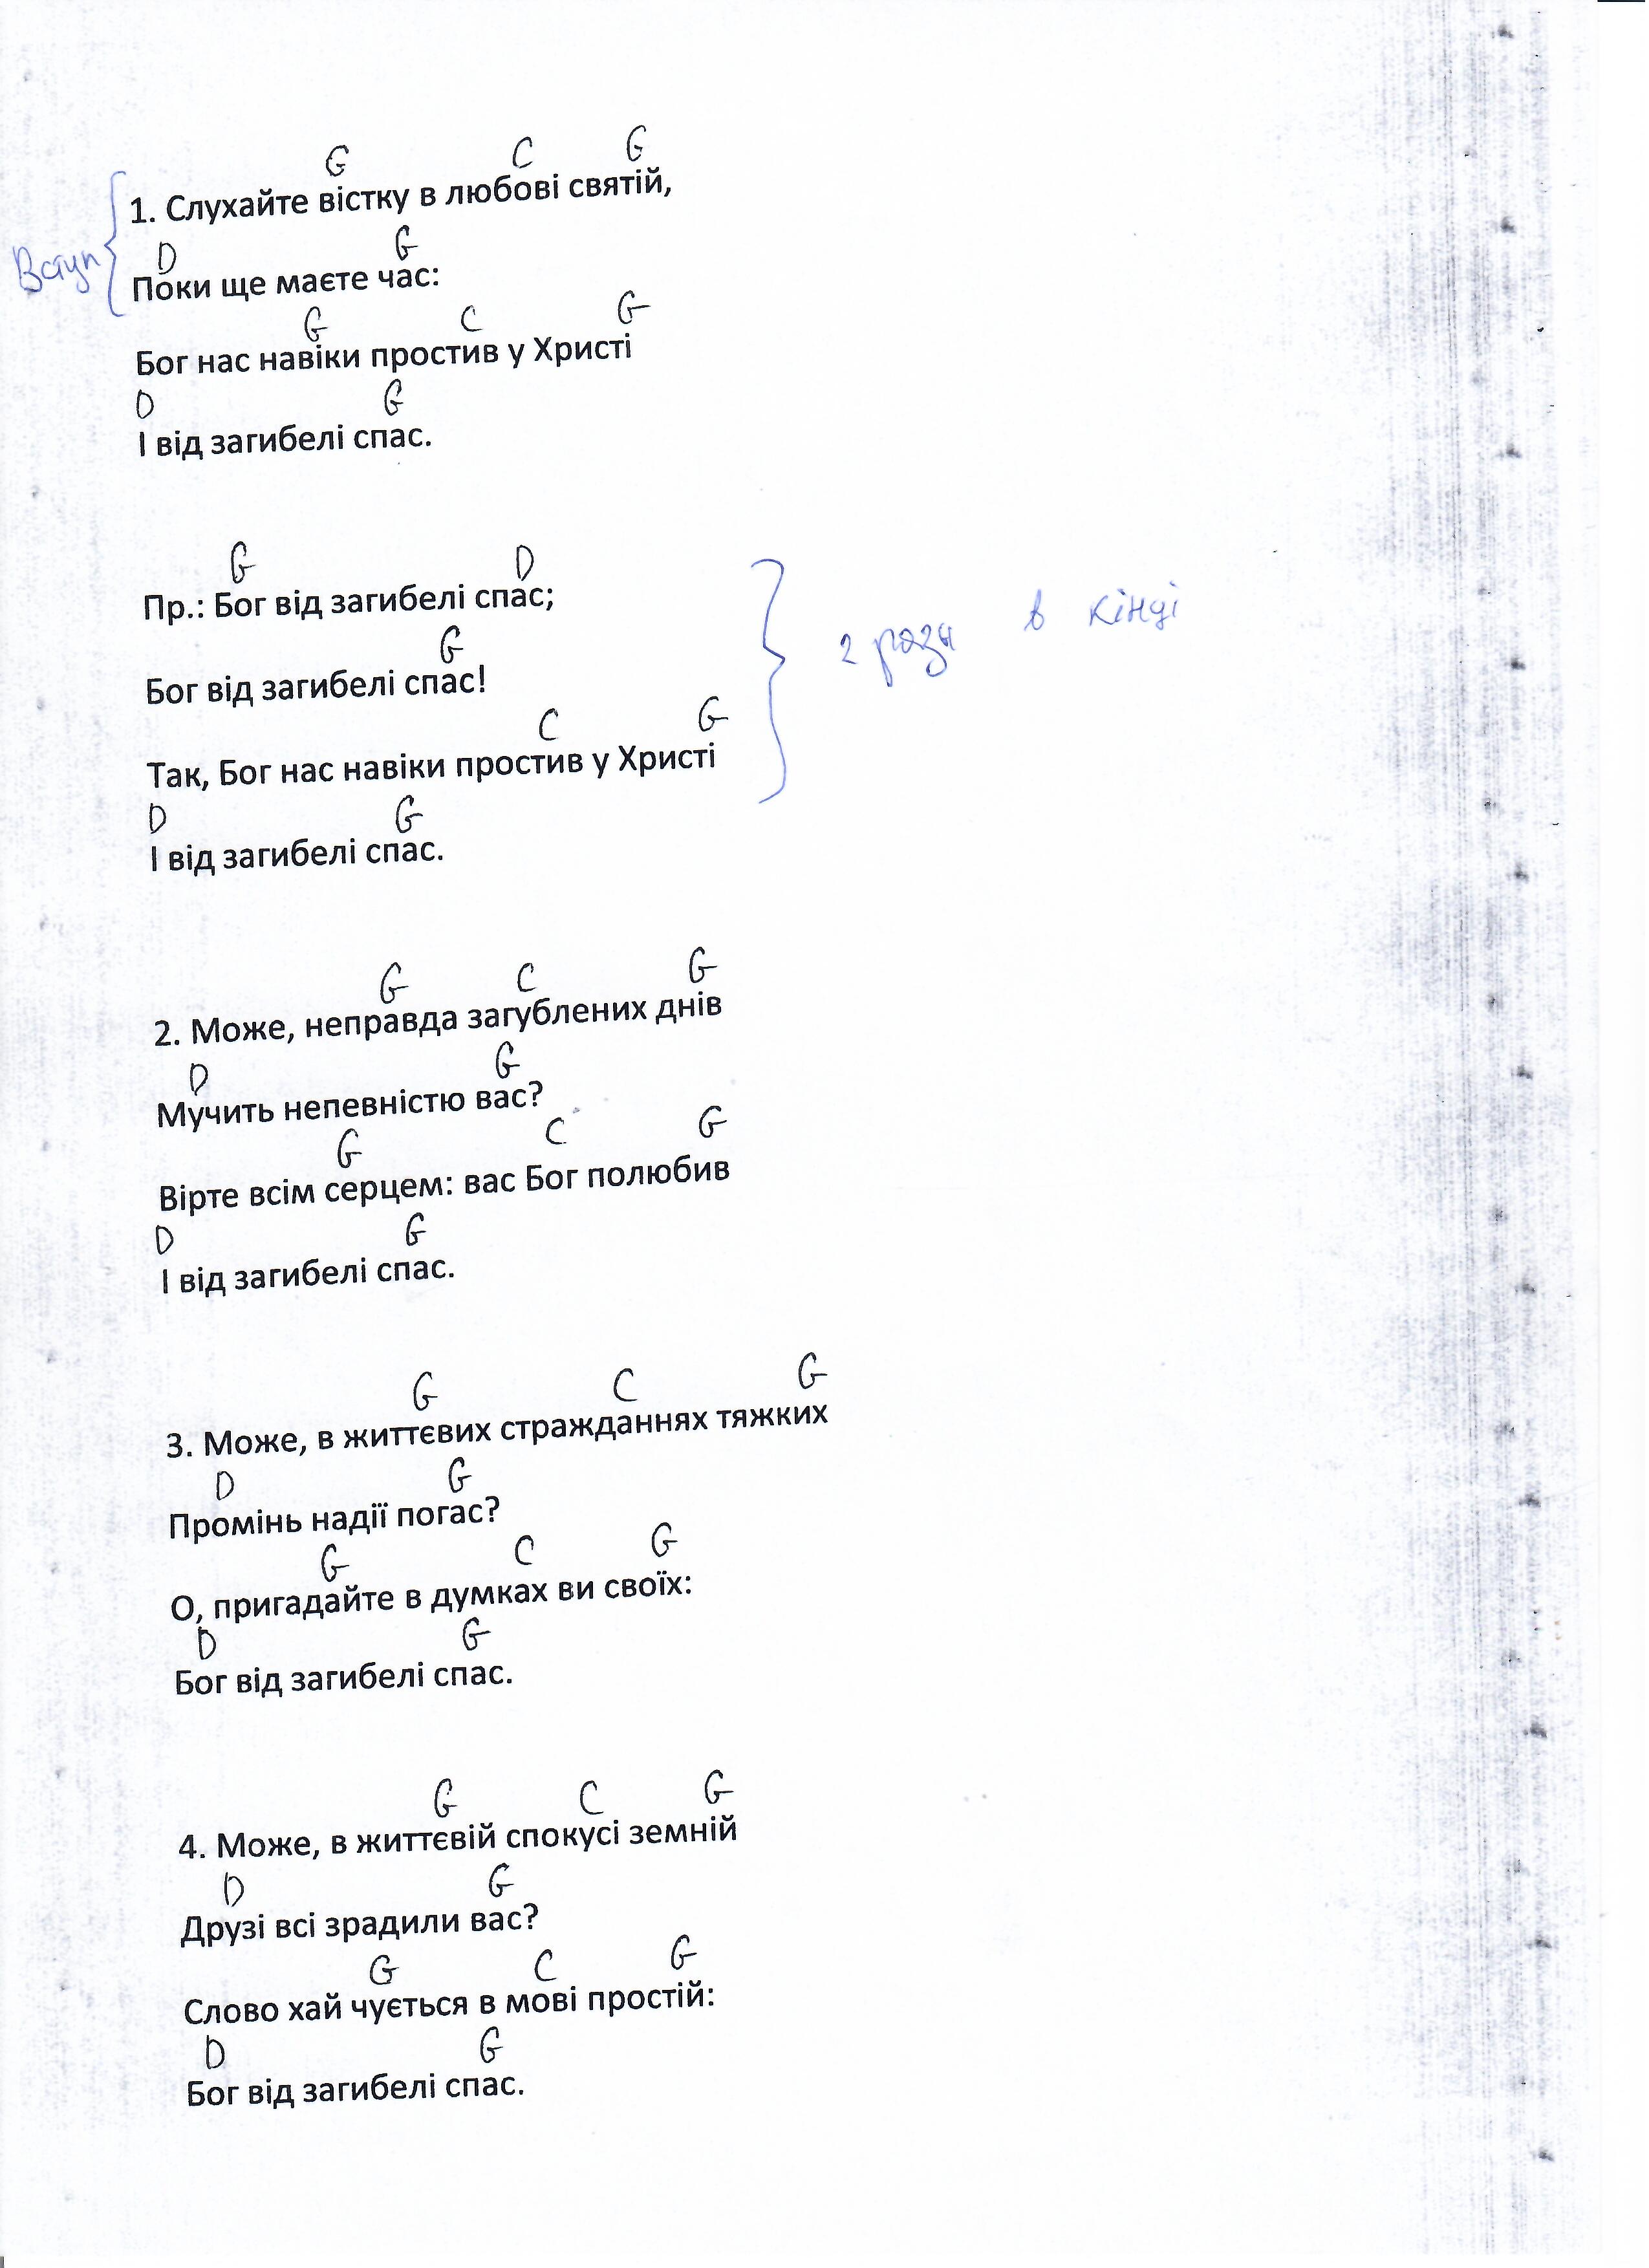 G C G
1. Слухайте вістку в любові святій,
Вступ
D G
Поки ще маєте час:
G C G
Бог нас навіки простив у Христі
D G
І від загибелі спас.
G D
Пр.: Бог від загибелі спас;
2 рази в кінці
G
Бог від загибелі спас!
C G
Так, Бог нас навіки простив у Христі
D G
І від загибелі спас.
G C G
2. Може, неправда загублених днів
D G
Мучить непевністю вас?
G C G
Вірте всім серцем: вас Бог полюбив
D G
І від загибелі спас.
G C G
3. Може, в життєвих стражданнях тяжких
D G
Промінь надії погас?
G C G
О, пригадайте в думках ви своїх:
D G
Бог від загибелі спас.
G C G
4. Може, в життєвій спокусі земній
D G
Друзі всі зрадили вас?
G C G
Слово хай чується в мові простій:
D G
Бог від загибелі спас.